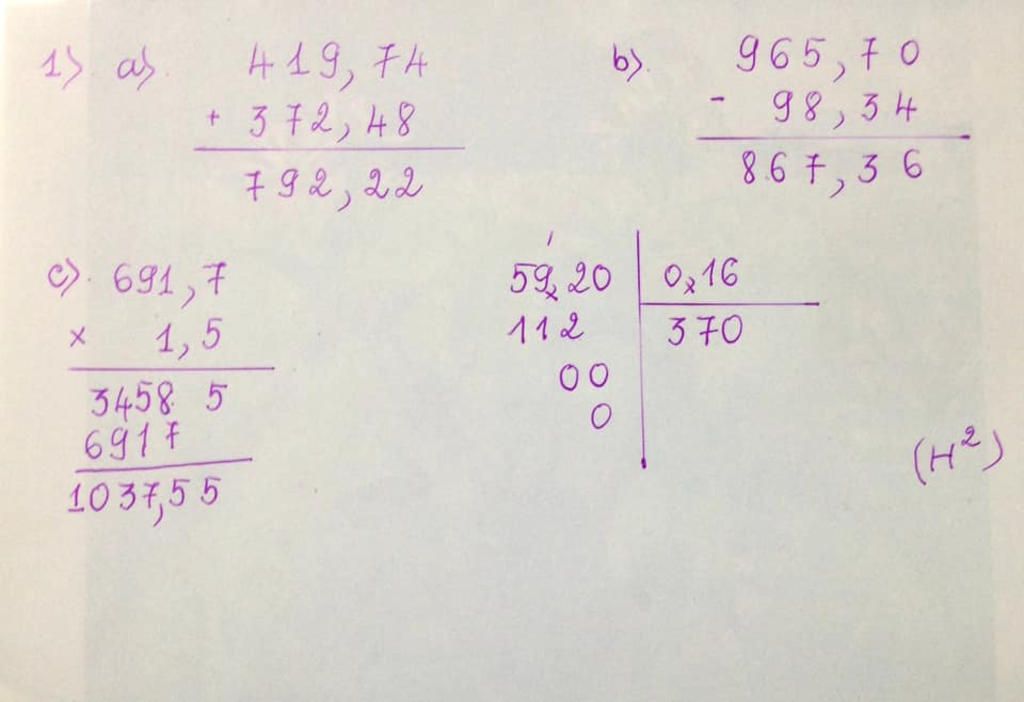 1) a) 419,74
+ 372,48
792,22
b) 965,70
- 98,34
867,36
c) 691,7
x 1,5
3458 5
6917
1037,55
59,20 0,16
112 370
00
0
(H²)